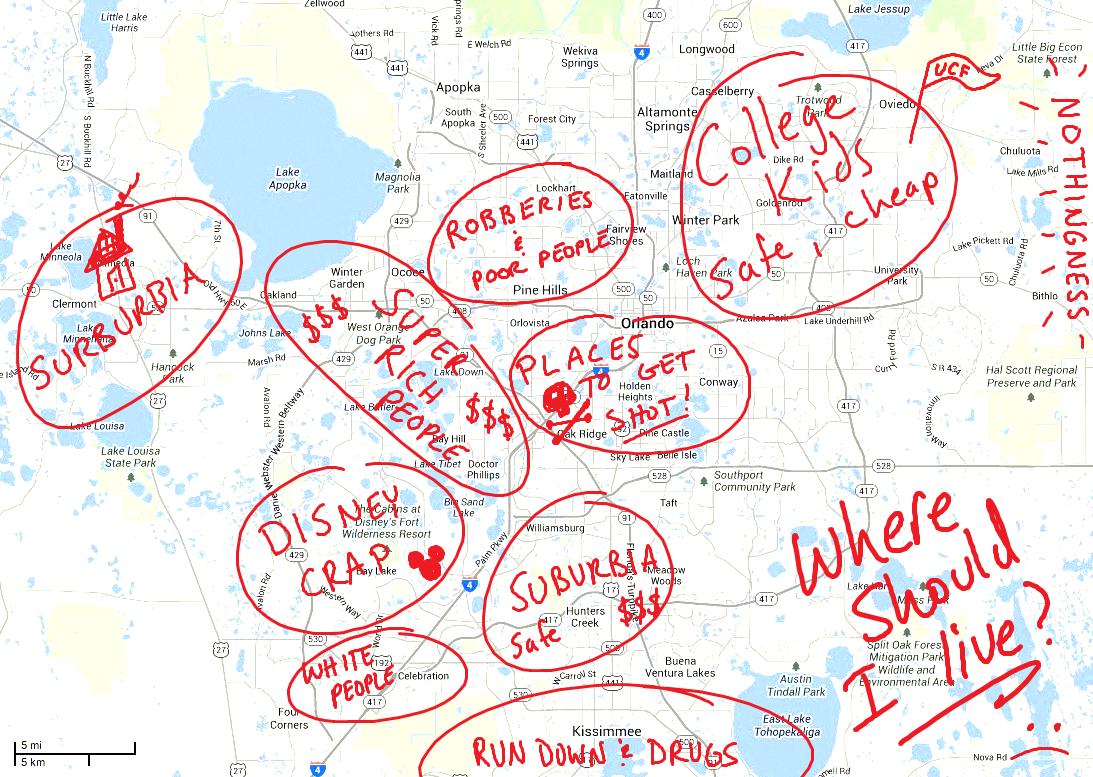 Zellwood
Little Lake
Harris
Lake Jessup
400
600
417
441
441
E Welch Rd
Vick Rd
Wekiva
Springs
4
Longwood
Little Big Econ
State Forest
N Buckhill Rd
S Buckhill Rd
Apopka
Casselberry
Trotwood
Park
Oviedo
UCF
South
Apopka
S Sheeler Ave
500
Forest City
441
Altamonte
Springs
College
Kids
Safe & cheap
Dike Rd
Goldenrod
417
NOTHINGNESS
Chuluota
Lake Mills Rd
27
Lake
Apopka
Magnolia
Park
429
Lockhart
Maitland
Eatonville
ROBBERIES
&
POOR PEOPLE
Fairview
Shores
Winter Park
Pine Hills
Loch
Haven Park
50
University
Park
Lake Pickett Rd
Chuluota Rd
50
Bithlo
91
7th St
Lake
Minneola
50
Clermont
SURBURBIA
Old Hwy 50 E
Oakland
Winter
Garden
Ocoee
50
408
500
50
408
Johns Lake
Marsh Rd
Hancock
Park
27
Lake Louisa
Lake Louisa
State Park
$$$
SUPER
RICH
PEOPLE
$$$
West Orange
Dog Park
429
Lake Down
Lake Butler
Bay Hill
Lake Tibet
Doctor
Phillips
Avalon Rd
Daniel Webster Western Beltway
Orlovista
Orlando
Azalea Park
Lake Underhill Rd
PLACES
TO GET
SHOT!
4
15
Holden
Heights
Conway
Oak Ridge
Pine Castle
Sky Lake
Belle Isle
Curry Ford Rd
S R 434
Innovation Way
Hal Scott Regional
Preserve and Park
417
528
528
417
Southport
Community Park
Taft
DISNEY
CRAP
The Cabins at
Disney's Fort
Wilderness Resort
Big Sand
Lake
Bay Lake
429
Avalon Rd
Western Way
Palm Pkwy
4
Williamsburg
91
SUBURBIA
Safe
$$$
Florida's Turnpike
Meadow
Woods
17
417
Hunters
Creek
417
Where
should
I live?
Split Oak Forest
Mitigation Park
Wildlife and
Environmental Area
27
530
192
WHITE
PEOPLE
Celebration
417
Four
Corners
530
W Carroll St
441
Buena
Ventura Lakes
Austin
Tindall Park
East Lake
Tohopekaliga
Kissimmee
RUN DOWN & DRUGS
Nova Rd
5 mi
5 km
27
4